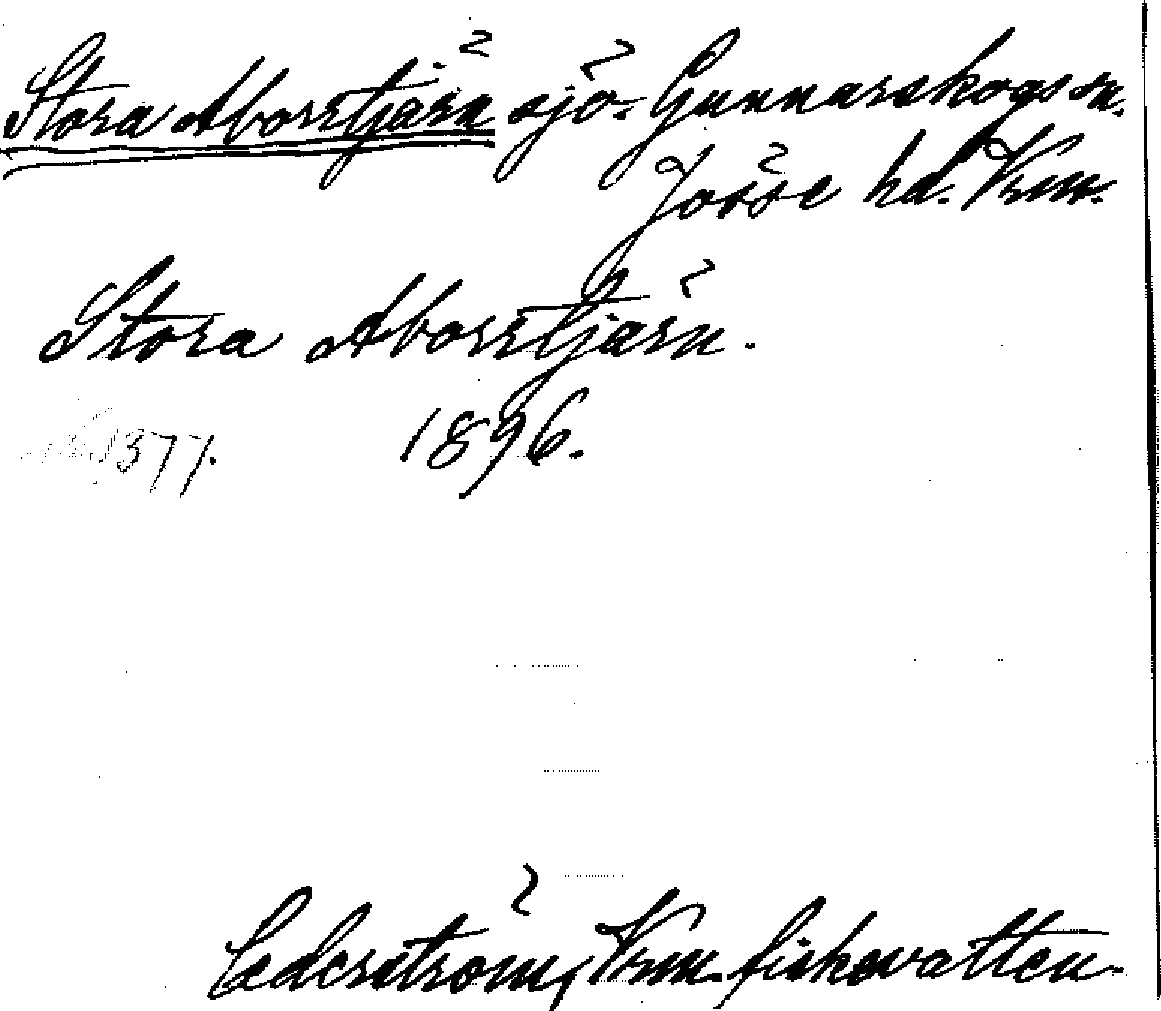 Stora Aborrtjärn sjö. Gunnarskogs sn.
Jösse hd. Vrm.
Stora Aborrtjärn.
377. 1896.
Cederström, Vrm. fiskevatten.